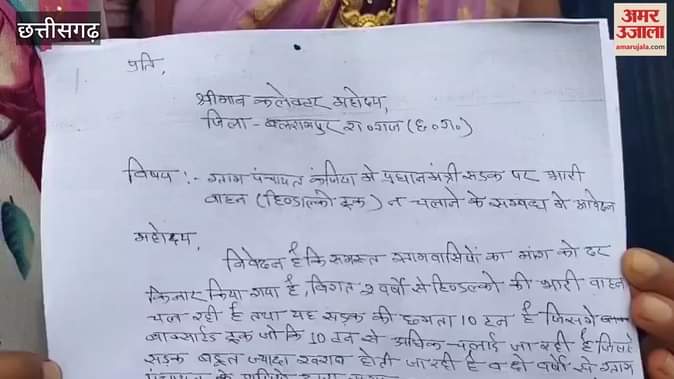 छत्तीसगढ़
अमर उजाला
amarujala.com
प्रति,
श्रीमान कलेक्टर महोदय,
जिला - बलरामपुर रा०गंज (छ०ग०)
विषय :- ग्राम पंचायत कंजिया में प्रधानमंत्री सडक पर भारी
वाहन (हिण्डाल्को ट्रक) न चलाने के सम्बंध में आवेदन
महोदय,
निवेदन है कि समस्त ग्रामवासियों का मांग को दर
किनार किया गया है, विगत 2 वर्षो से हिण्डाल्को की भारी वाहन
चल रही है तथा यह सड़क की क्षमता 10 टन है जिसमें
बाक्साईड ट्रक जो कि 10 टन से अधिक चलाई जा रही है जिससे
सड़क बहुत ज्यादा खराब होती जा रही है व दो वर्षो से ग्राम
पंचायत के